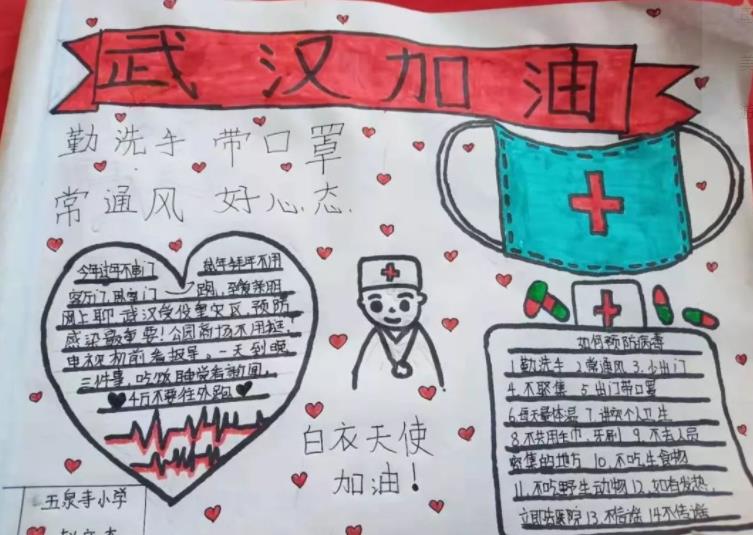 武汉加油
勤洗手 带口罩
常通风 好心态.
今年过年不串门
网上聊 武汉受役重灾区,预防
感染最重要!公园商场不用挺,
电视机前看报导。一天到晚
三件事,吃饭睡觉看新闻,
4万不要往外跑
白衣天使
加油!
如何预防病毒
1勤洗手 2.常通风 3.少出门
4.不聚集 5出门带口罩
6每天量体温 7.讲究个人卫生
8.不共用毛巾、牙刷 9.不去人员
密集的地方 10.不吃生食物
11.不吃野生动物 12.如有发热,
立即去医院 13.不信谣 14不传谣
五泉寺小学